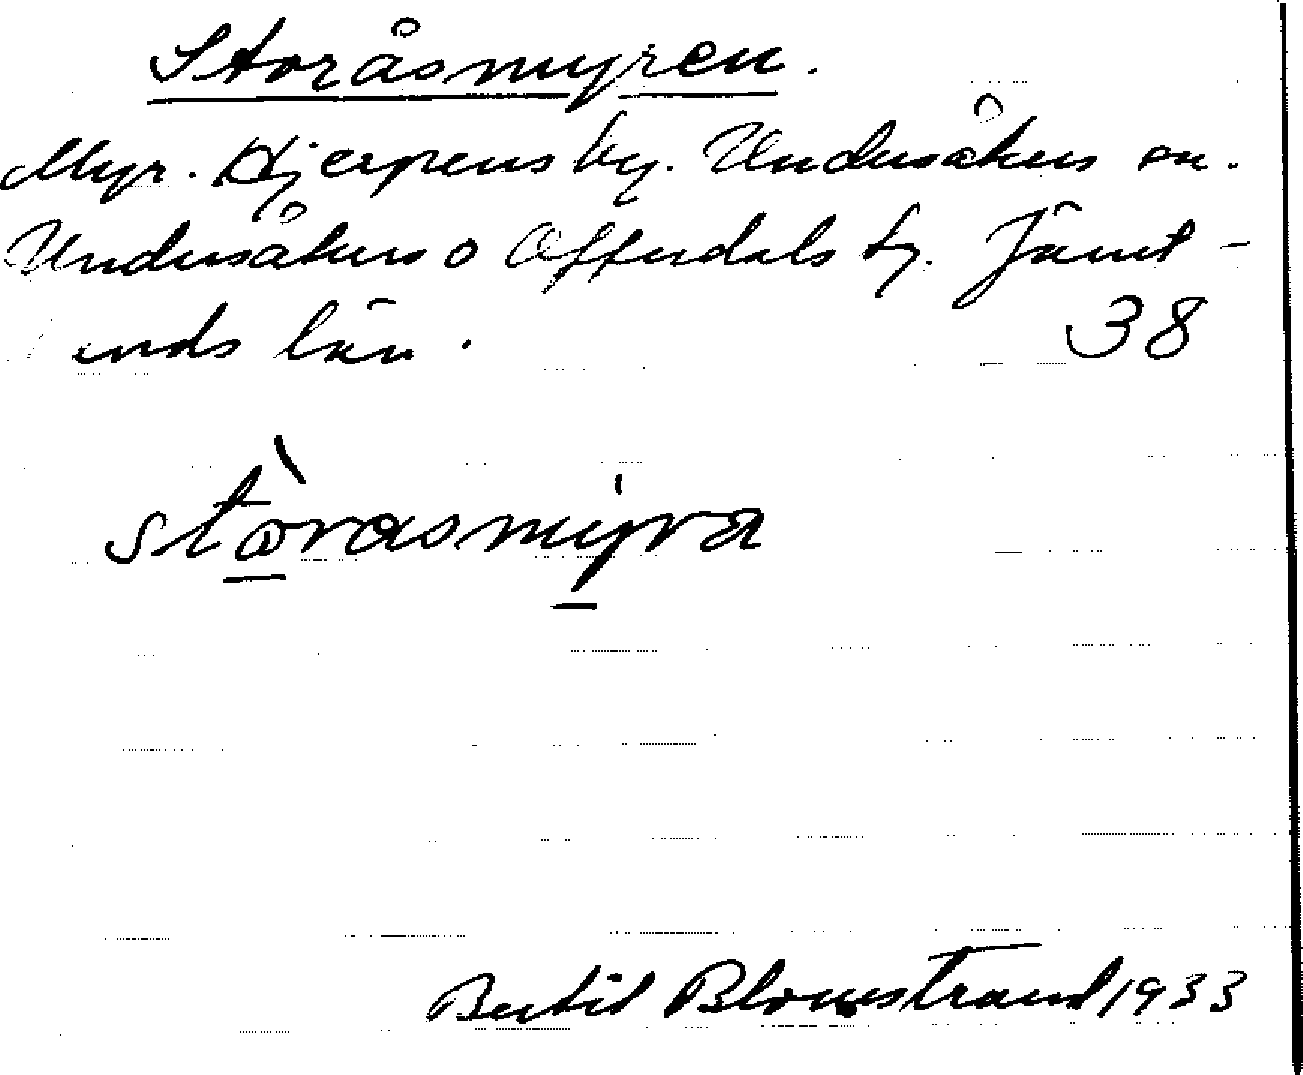 Storåsmyren.
Myr. Hjerpens by. Undersåkers sn.
Undersåkers o Offerdals tg. Jämt-
lands län. 38
stòrasmýra
Bertil Blomstrand 1933